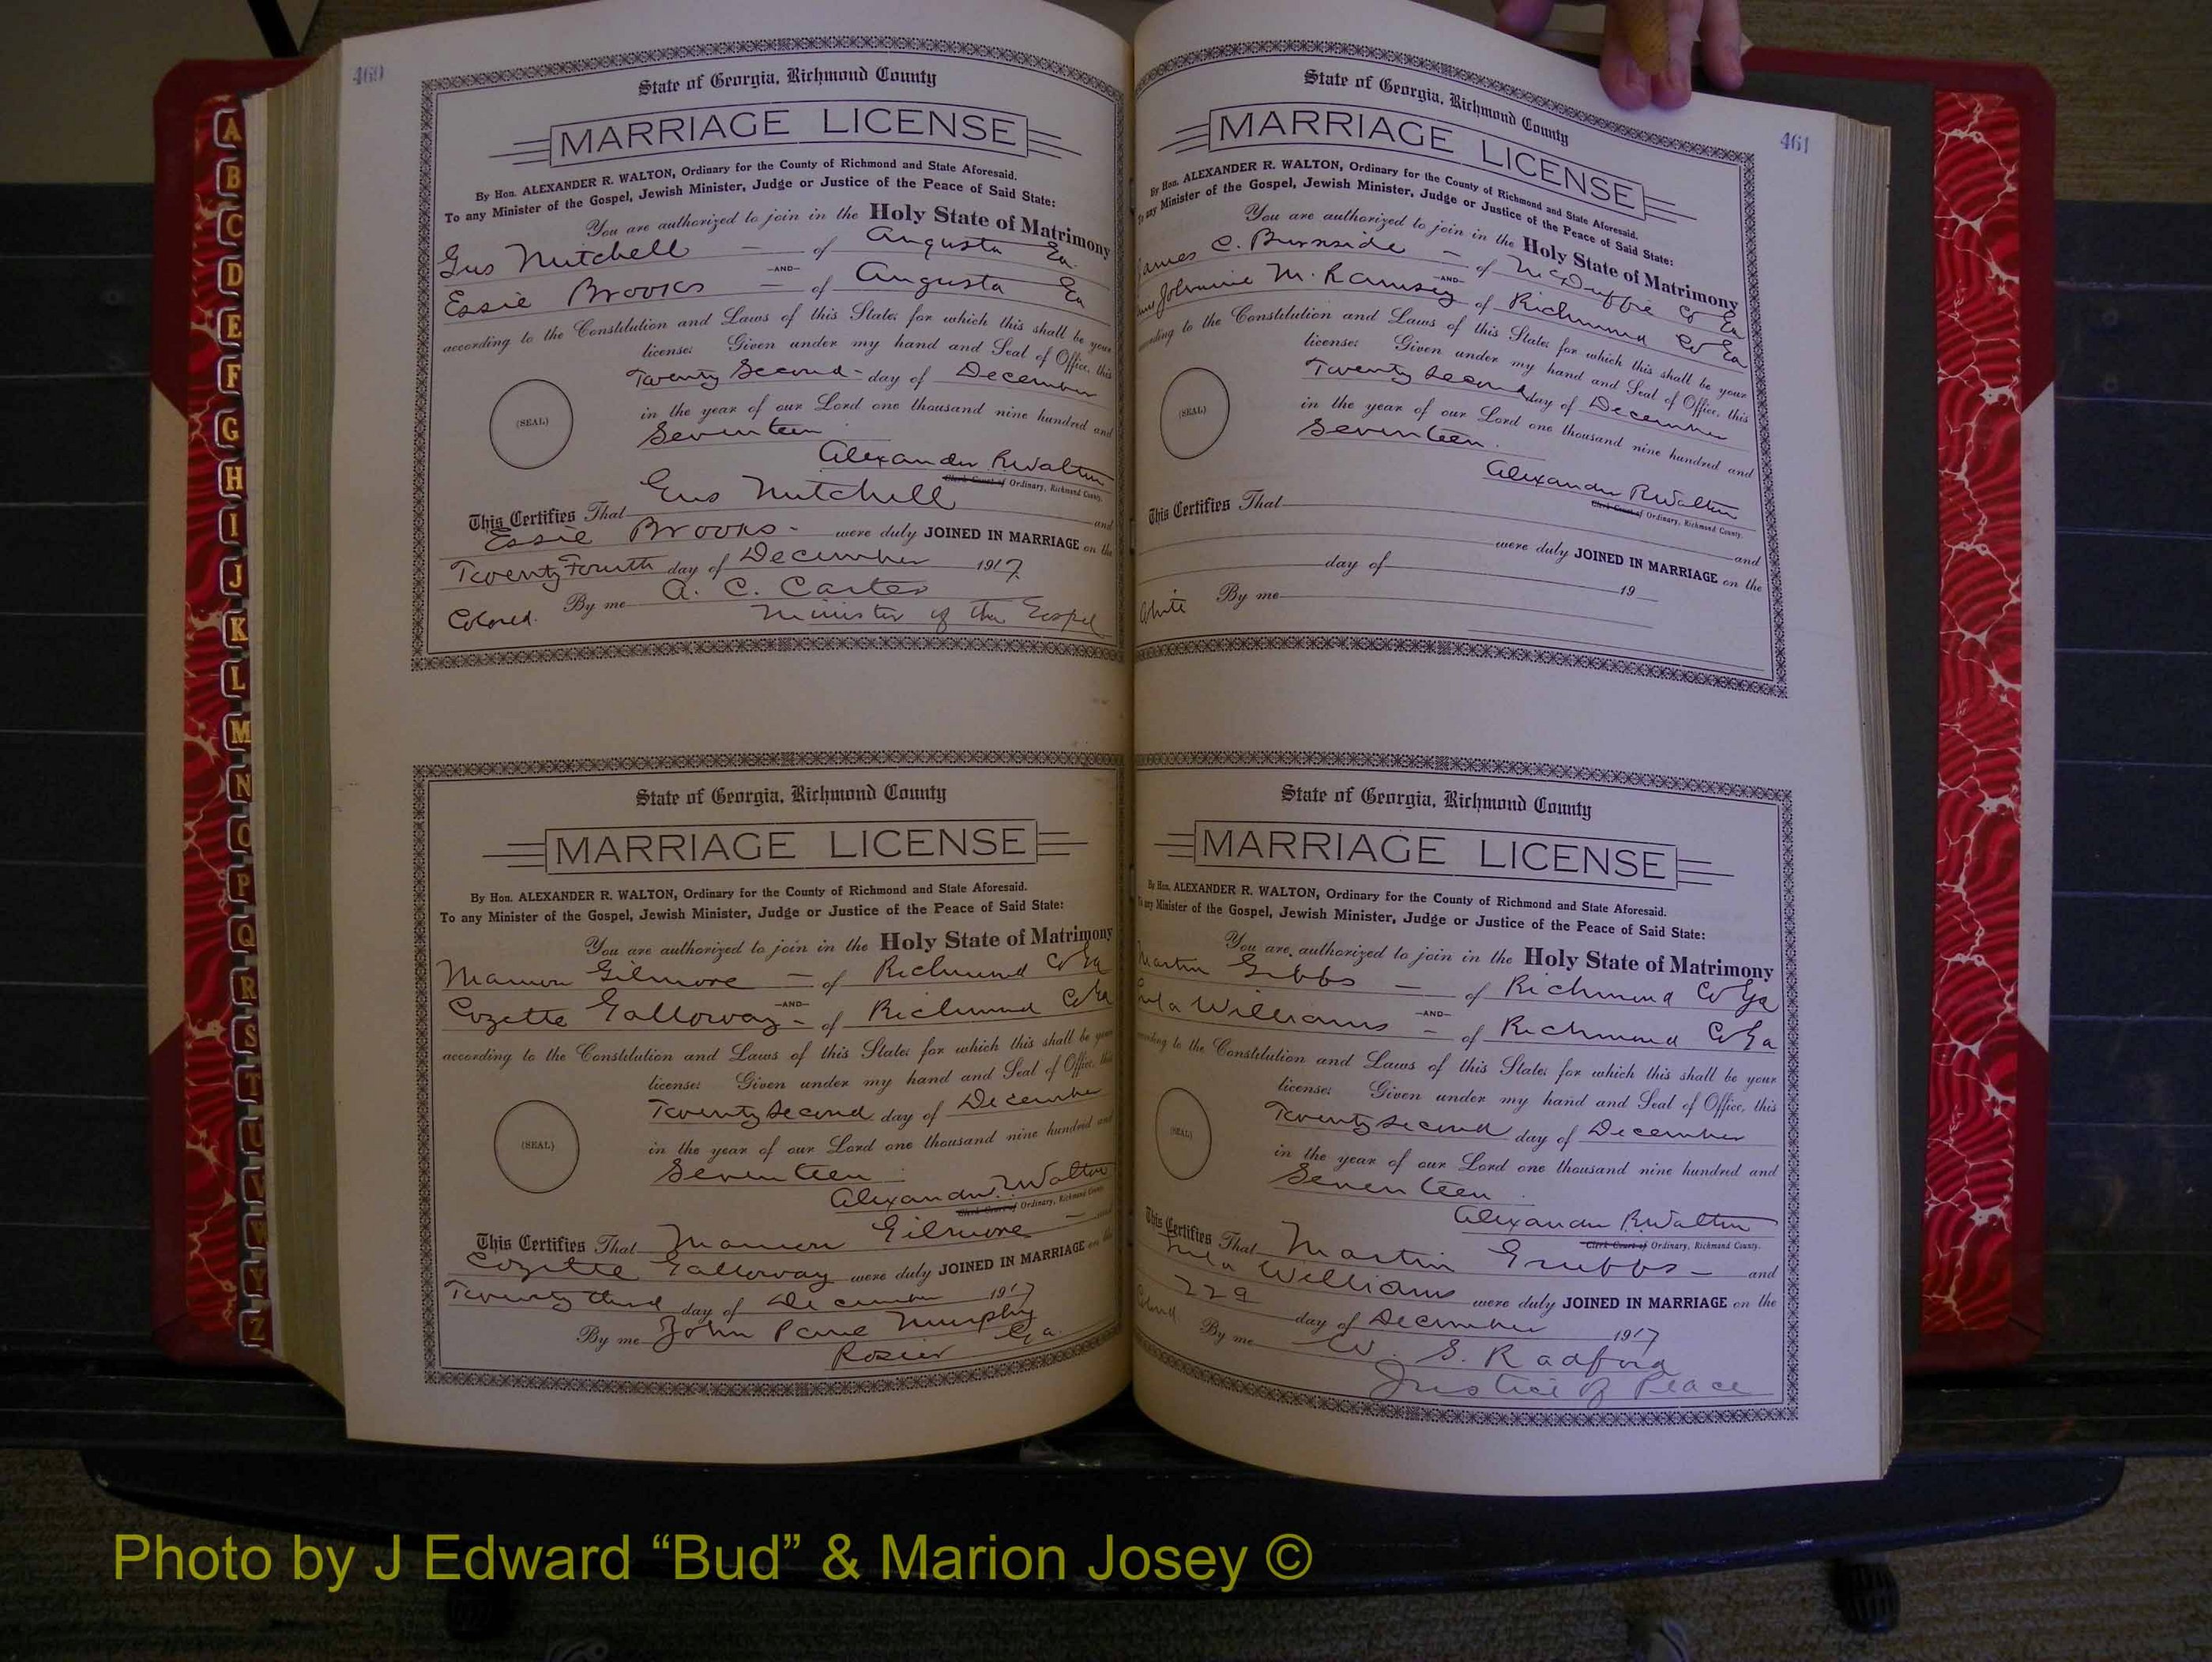 460
State of Georgia, Richmond County
MARRIAGE LICENSE
By Hon. ALEXANDER R. WALTON, Ordinary for the County of Richmond and State Aforesaid.
To any Minister of the Gospel, Jewish Minister, Judge or Justice of the Peace of Said State:
You are authorized to join in the Holy State of Matrimony
Gus Mitchell — of Augusta Ga.
—AND—
Essie Brooks — of Augusta Ga
according to the Constitution and Laws of this State; for which this shall be your
license: Given under my hand and Seal of Office, this
Twenty Second - day of December
in the year of our Lord one thousand nine hundred and
(SEAL)
Seventeen
Alexander R Walton
Clerk Court of Ordinary, Richmond County.
This Certifies That Gus Mitchell and
Essie Brooks - were duly JOINED IN MARRIAGE on the
Twenty Fourth day of December 1917
Colored. By me A. C. Carter
Minister of the Gospel
State of Georgia, Richmond County
MARRIAGE LICENSE
By Hon. ALEXANDER R. WALTON, Ordinary for the County of Richmond and State Aforesaid.
To any Minister of the Gospel, Jewish Minister, Judge or Justice of the Peace of Said State:
You are authorized to join in the Holy State of Matrimony
Gilmore — of Richmond Co Ga
—AND—
Cozette Galloway - of Richmond Co Ga
according to the Constitution and Laws of this State; for which this shall be your
license: Given under my hand and Seal of Office, this
Twenty Second day of December
(SEAL)
in the year of our Lord one thousand nine hundred and
Seventeen
Alexander R Walton
Clerk Court of Ordinary, Richmond County.
This Certifies That Gilmore — and
Cozette Galloway were duly JOINED IN MARRIAGE on the
Twenty third day of December 1917
By me John Murphy
Rosier Ga.
461
State of Georgia, Richmond County
MARRIAGE LICENSE
By Hon. ALEXANDER R. WALTON, Ordinary for the County of Richmond and State Aforesaid.
To any Minister of the Gospel, Jewish Minister, Judge or Justice of the Peace of Said State:
You are authorized to join in the Holy State of Matrimony
James C. Burnside — of McDuffie Co Ga
—AND—
M. Ramsey of Richmond Co Ga
according to the Constitution and Laws of this State; for which this shall be your
license: Given under my hand and Seal of Office, this
Twenty Second day of December
(SEAL)
in the year of our Lord one thousand nine hundred and
Seventeen.
Alexander R Walton
Clerk Court of Ordinary, Richmond County.
This Certifies That and
were duly JOINED IN MARRIAGE on the
day of 19
White By me
State of Georgia, Richmond County
MARRIAGE LICENSE
By Hon. ALEXANDER R. WALTON, Ordinary for the County of Richmond and State Aforesaid.
To any Minister of the Gospel, Jewish Minister, Judge or Justice of the Peace of Said State:
You are authorized to join in the Holy State of Matrimony
Martin Gibbs — of Richmond Co Ga
—AND—
Williams — of Richmond Co Ga
according to the Constitution and Laws of this State; for which this shall be your
license: Given under my hand and Seal of Office, this
Twenty Second day of December
(SEAL)
in the year of our Lord one thousand nine hundred and
Seventeen
Alexander R Walton
Clerk Court of Ordinary, Richmond County.
This Certifies That Martin Grubbs — and
Williams were duly JOINED IN MARRIAGE on the
22d day of December 1917
Colored By me W. S. Radford
Justice of Peace
A
B
C
D
E
F
G
H
I
J
K
L
M
N
O
P
Q
R
S
T
U
V
W
Y
Z
Photo by J Edward “Bud” & Marion Josey ©